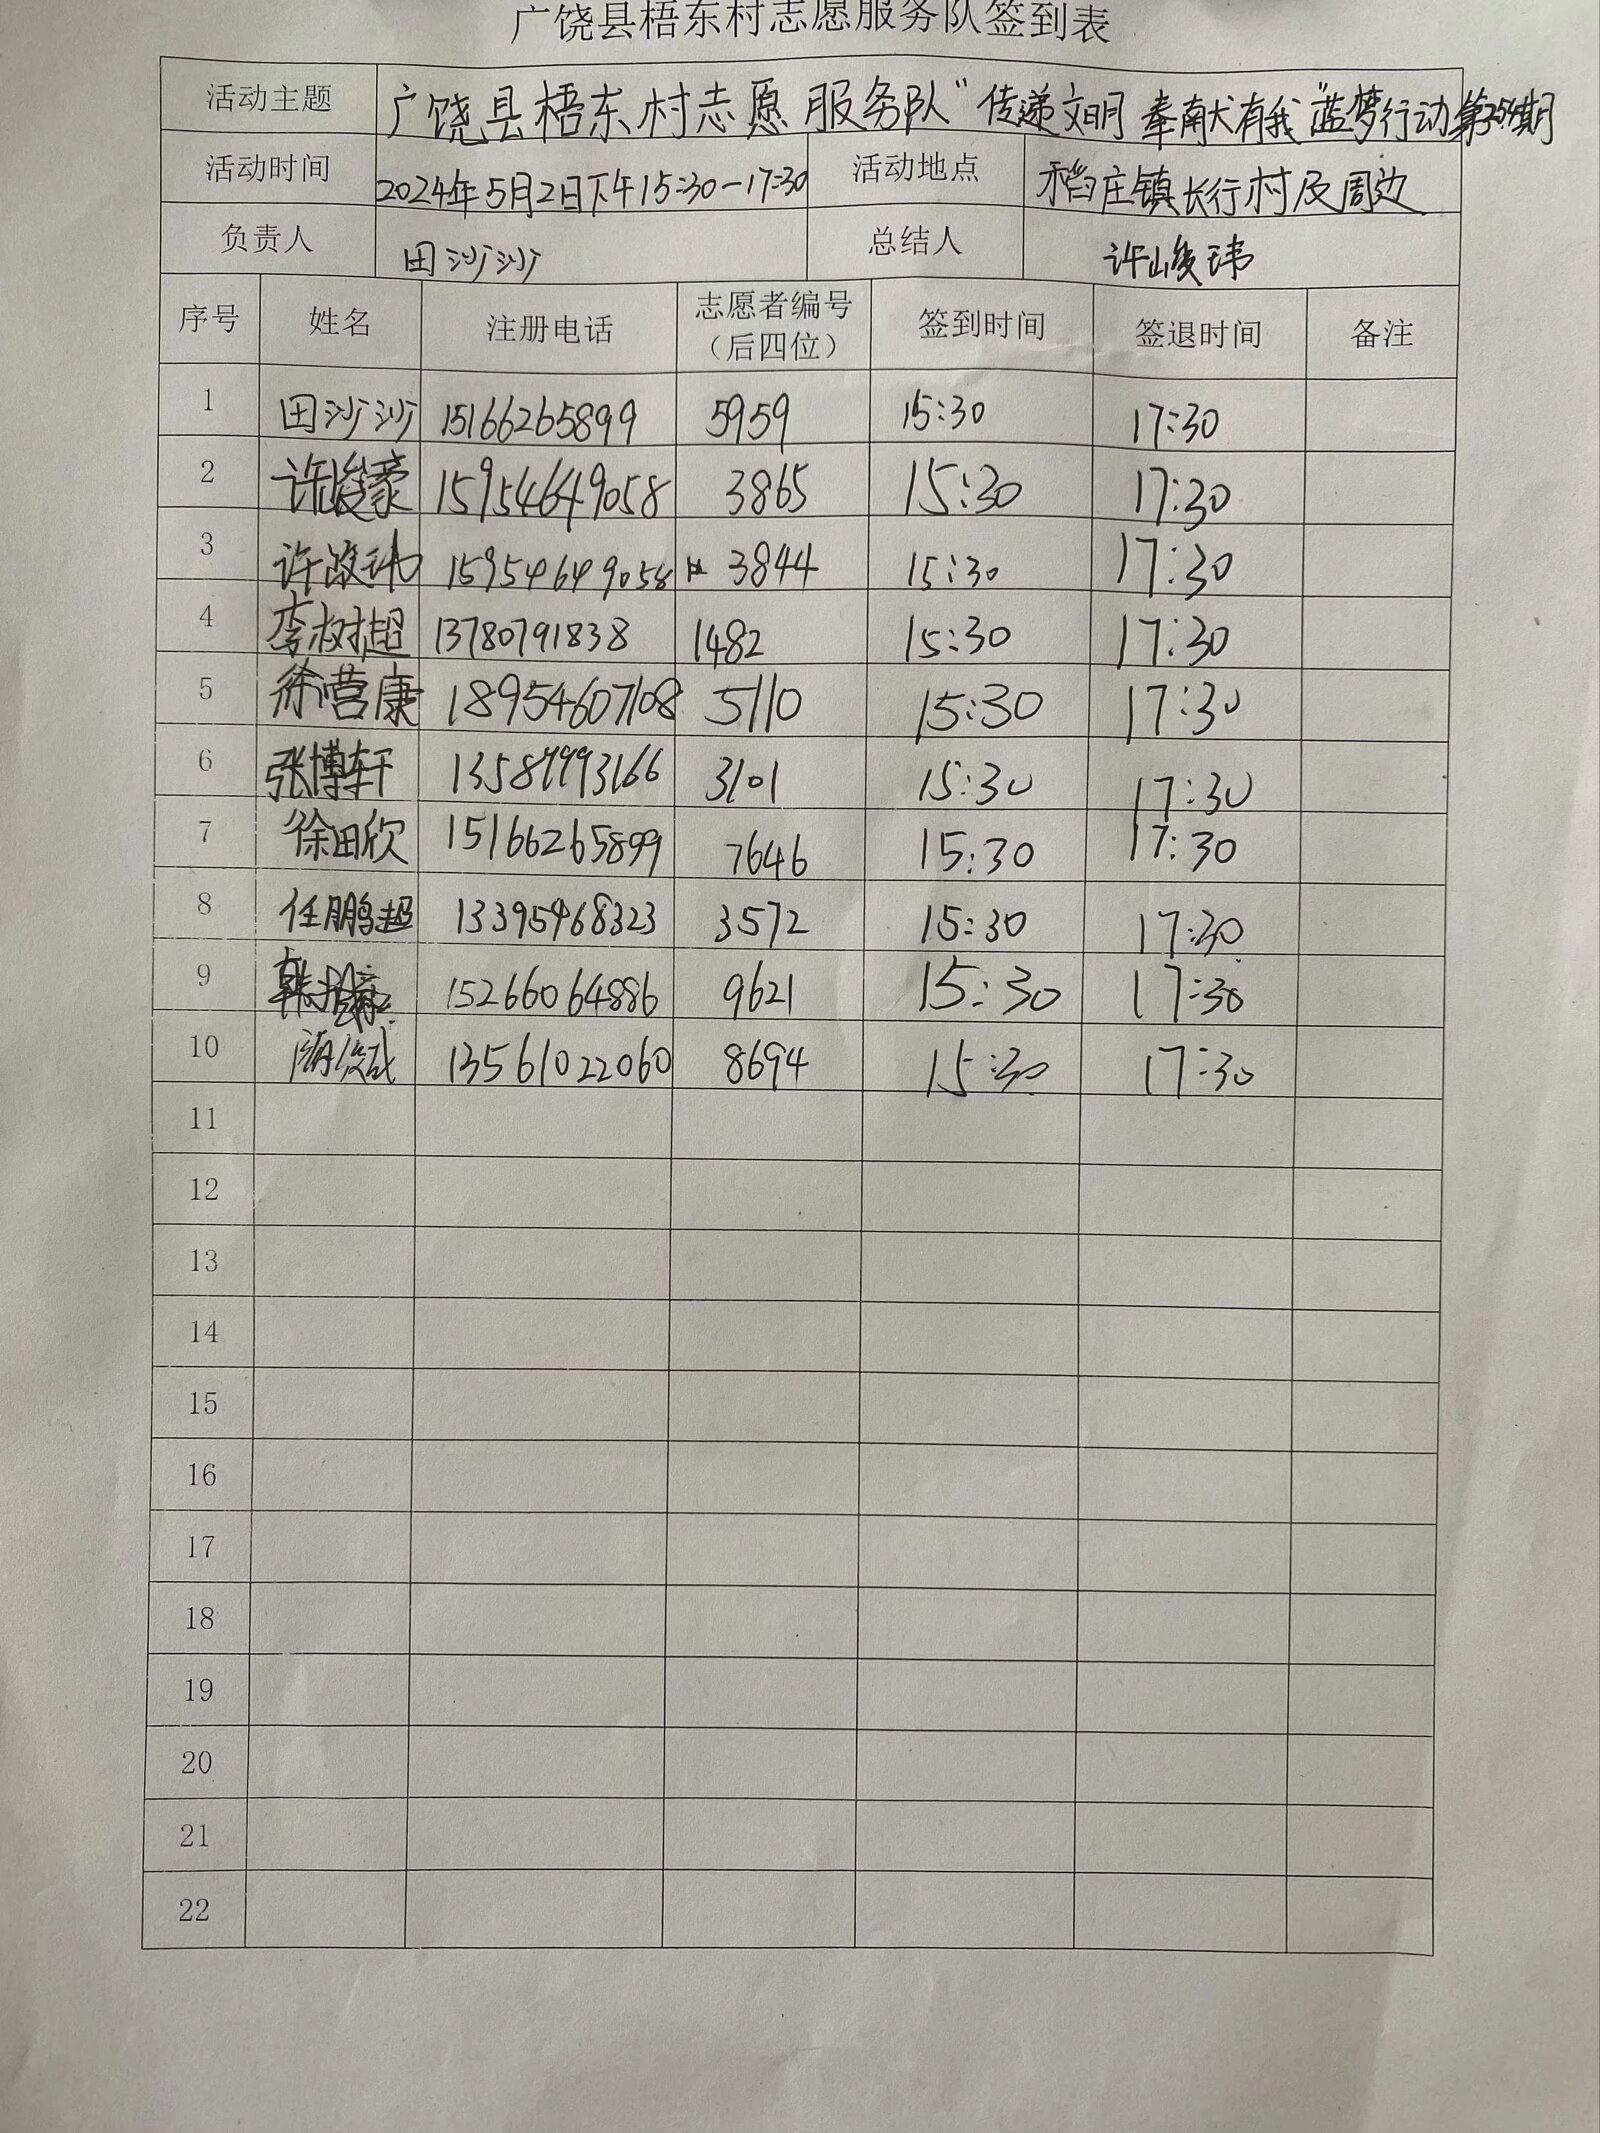 广饶县梧东村志愿服务队签到表
活动主题 广饶县梧东村志愿服务队“传递文明 奉献有我”蓝梦行动第 期
活动时间 2024年5月2日下午15:30-17:30 活动地点 稻庄镇长行村及周边
负责人 田沙沙 总结人 许峻玮
序号 姓名 注册电话 志愿者编号（后四位） 签到时间 签退时间 备注
1 田沙沙 15166265899 5959 15:30 17:30
2 许峻豪 15954649058 3865 15:30 17:30
3 许峻玮 15954649058 3844 15:30 17:30
4 李树超 13780791838 1482 15:30 17:30
5 徐营康 18954607108 5110 15:30 17:30
6 张博轩 13589993166 3101 15:30 17:30
7 徐田欣 15166265899 7646 15:30 17:30
8 任鹏超 13395468323 3572 15:30 17:30
9 韩 15266064886 9621 15:30 17:30
10 13561022060 8694 15:30 17:30
11
12
13
14
15
16
17
18
19
20
21
22